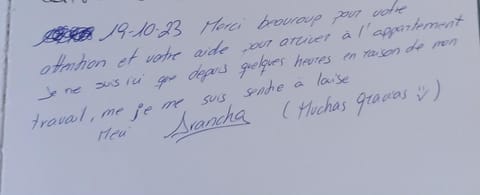 19-10-23 Merci beaucoup pour votre
attention et votre aide pour arriver à l'appartement
Je ne suis ici que depuis quelques heures en raison de mon
travail, me je me suis sentie à laise
Merci Arancha (Muchas gracias :)